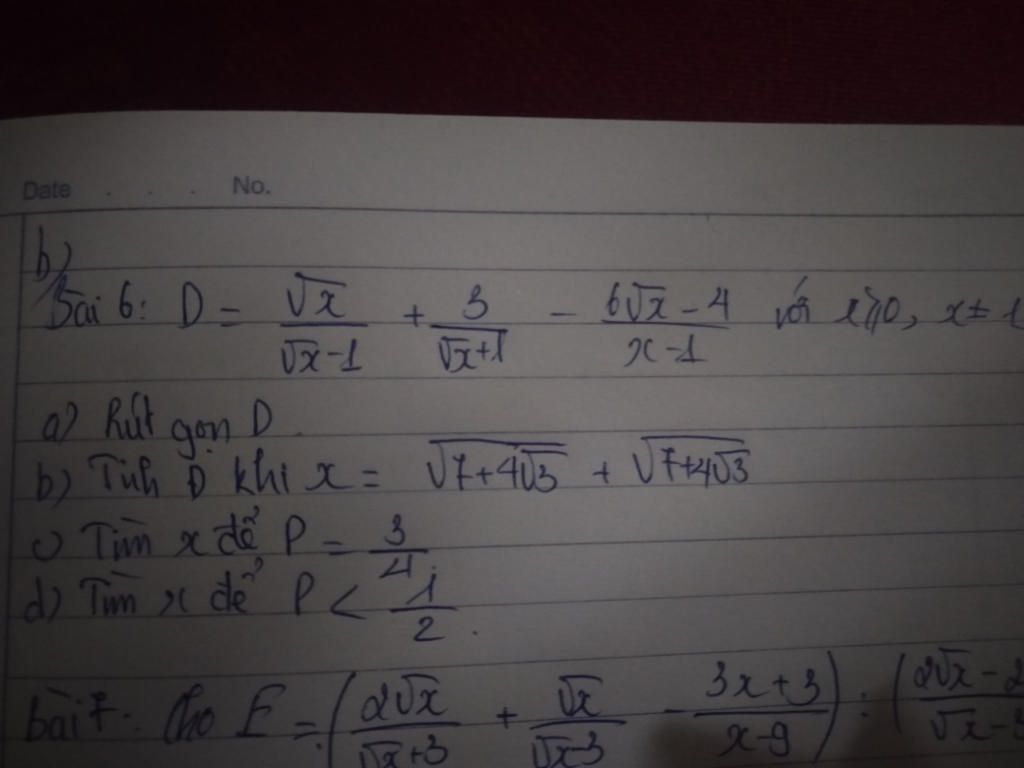 Date . . . No.
b)
Bài 6: D = √x/(√x-1) + 3/(√x+1) - (6√x-4)/(x-1) với x≥0, x≠1
a) Rút gọn D.
b) Tính D khi x = √(7+4√3) + √(7+4√3)
c) Tìm x để P = 3/4
d) Tìm x để P < 1/2.
bài 7: Cho E = (2√x/(√x+3) + √x/(√x-3) - (3x+3)/(x-9)) : (2√x-2/√x-3